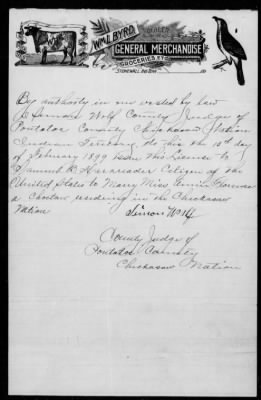 WM. L. BYRD,
DEALER
GENERAL MERCHANDISE
GROCERIES, ETC
STONEWALL, IND. TER.
By authority in me vested by law
I Simon Wolf County Judge of
Pontotoc County Chickasaw Nation
Indian Territory do this the 13th day
of February 1899 issue this License to
Samuel R. Citizen of the
United States to Marry Miss Annie
a Choctaw residing in the Chickasaw
Nation
Simon Wolf
County Judge of
Pontotoc County
Chickasaw Nation